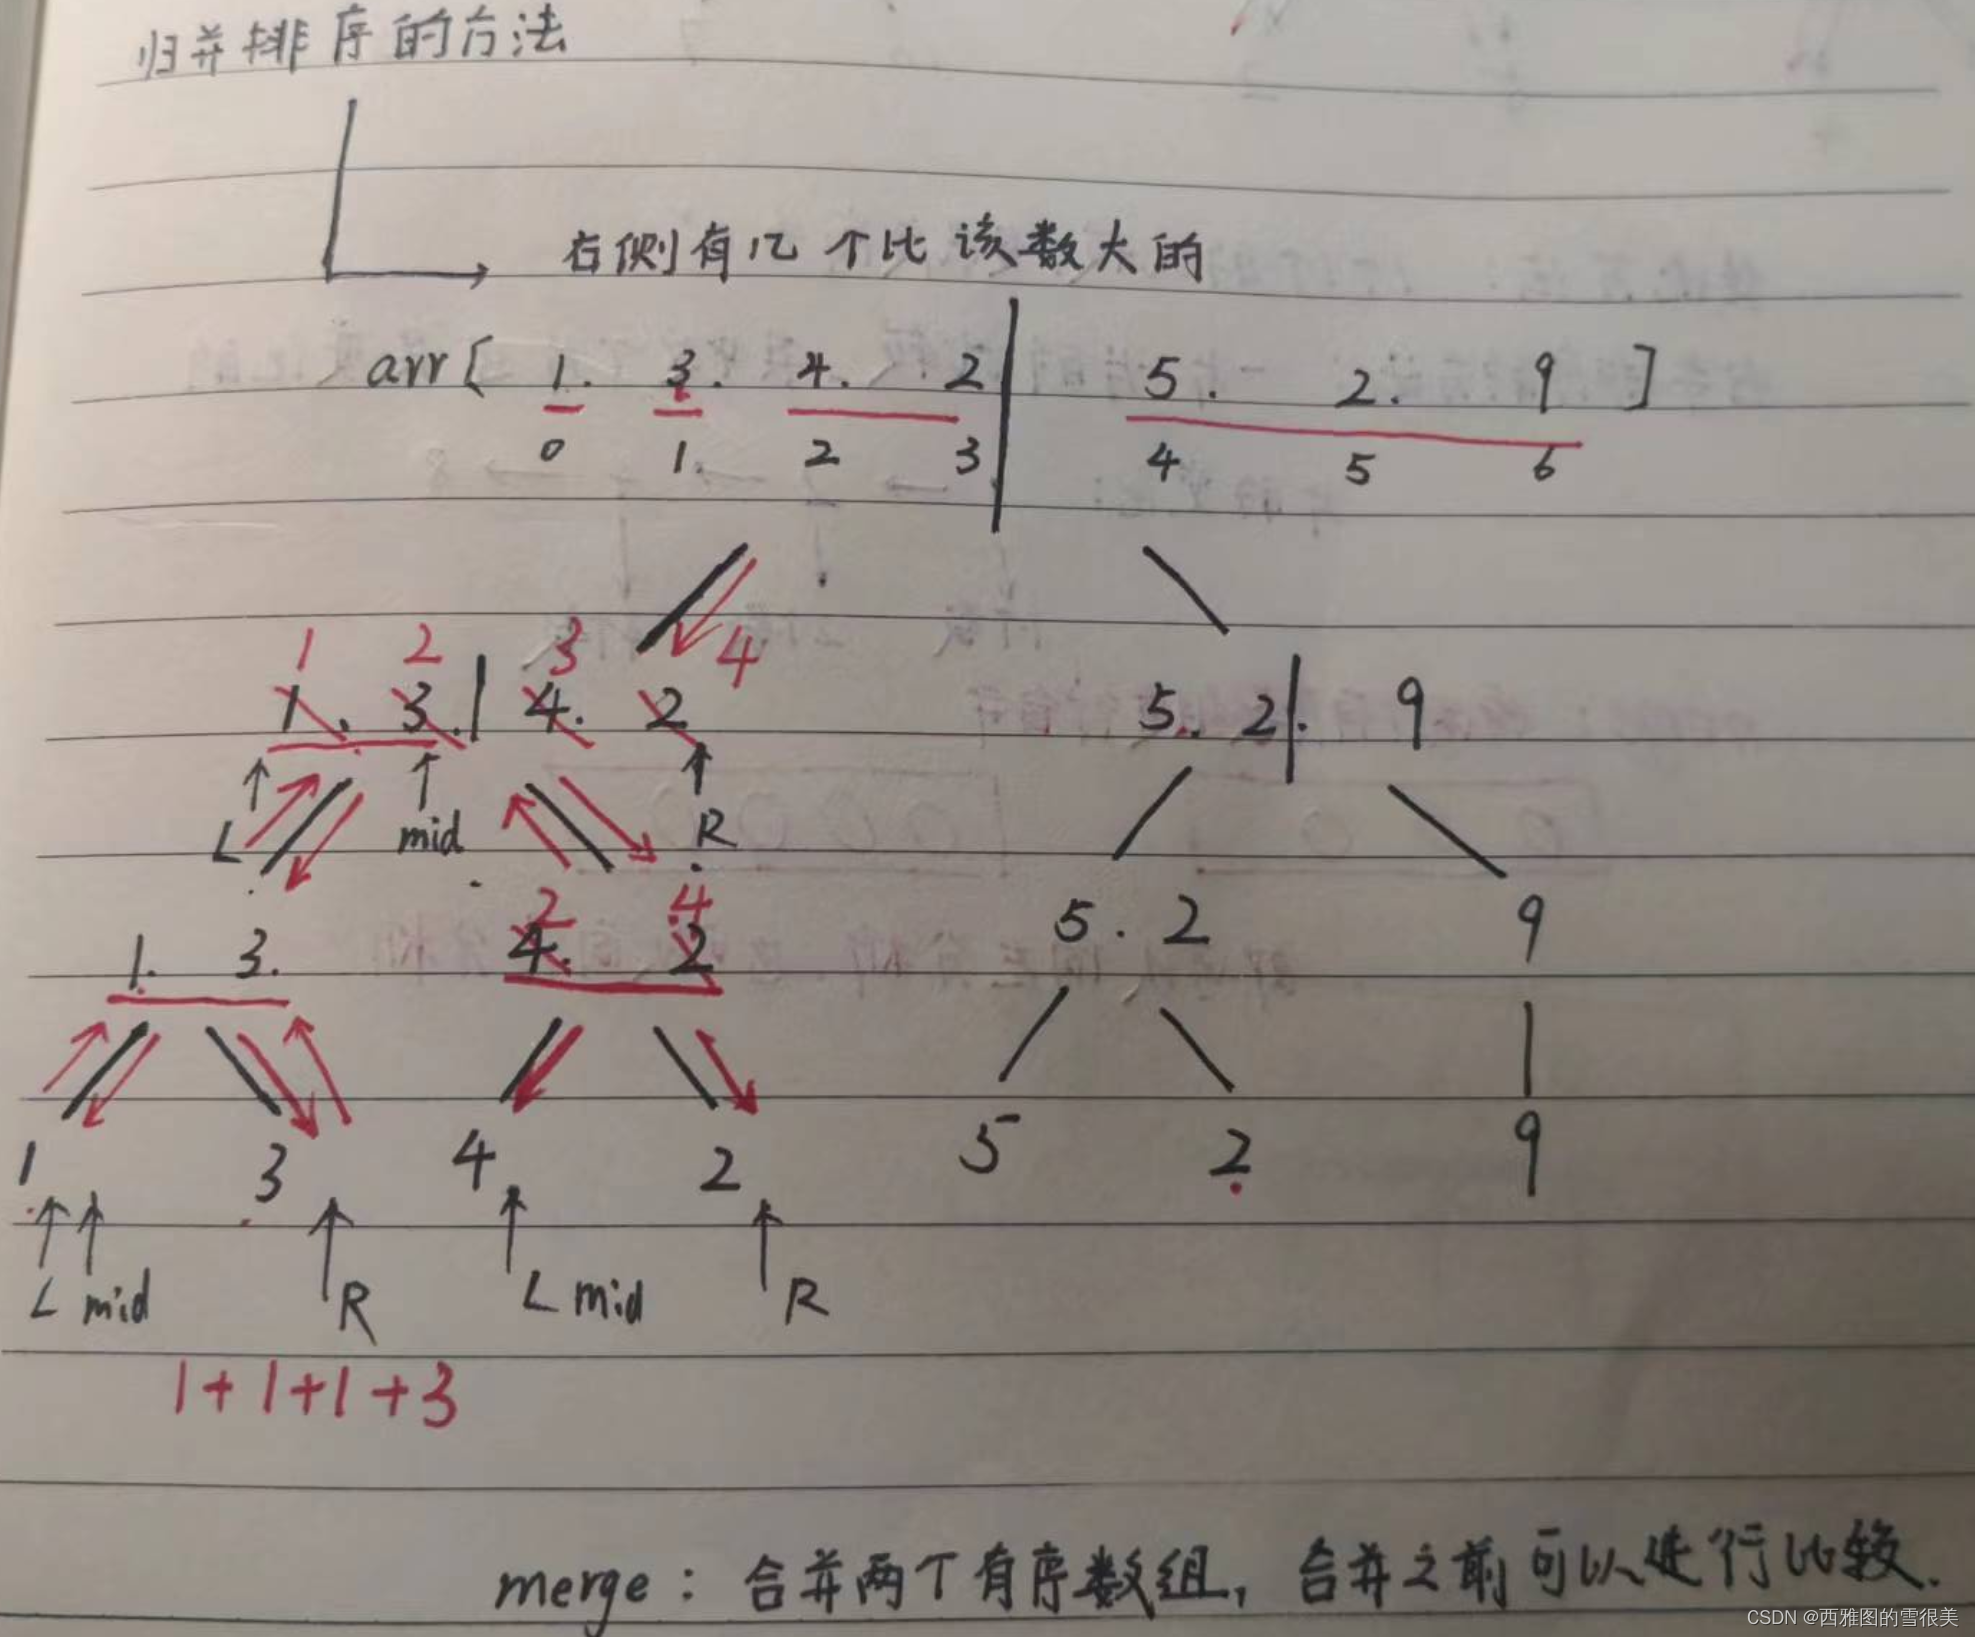 归并排序的方法
右侧有几个比该数大的
arr [ 1. 3. 4. 2 5. 2. 9 ]
0 1. 2 3 4 5 6
1 2 3 4
1. 3. 4. 2 5. 2. 9
L mid R
2 4
1. 3. 4. 2 5. 2 9
1 3 4 2 5 2 9
L mid R L mid R
1+1+1+3
merge: 合并两个有序数组, 合并之前可以进行比较.
CSDN @西雅图的雪很美